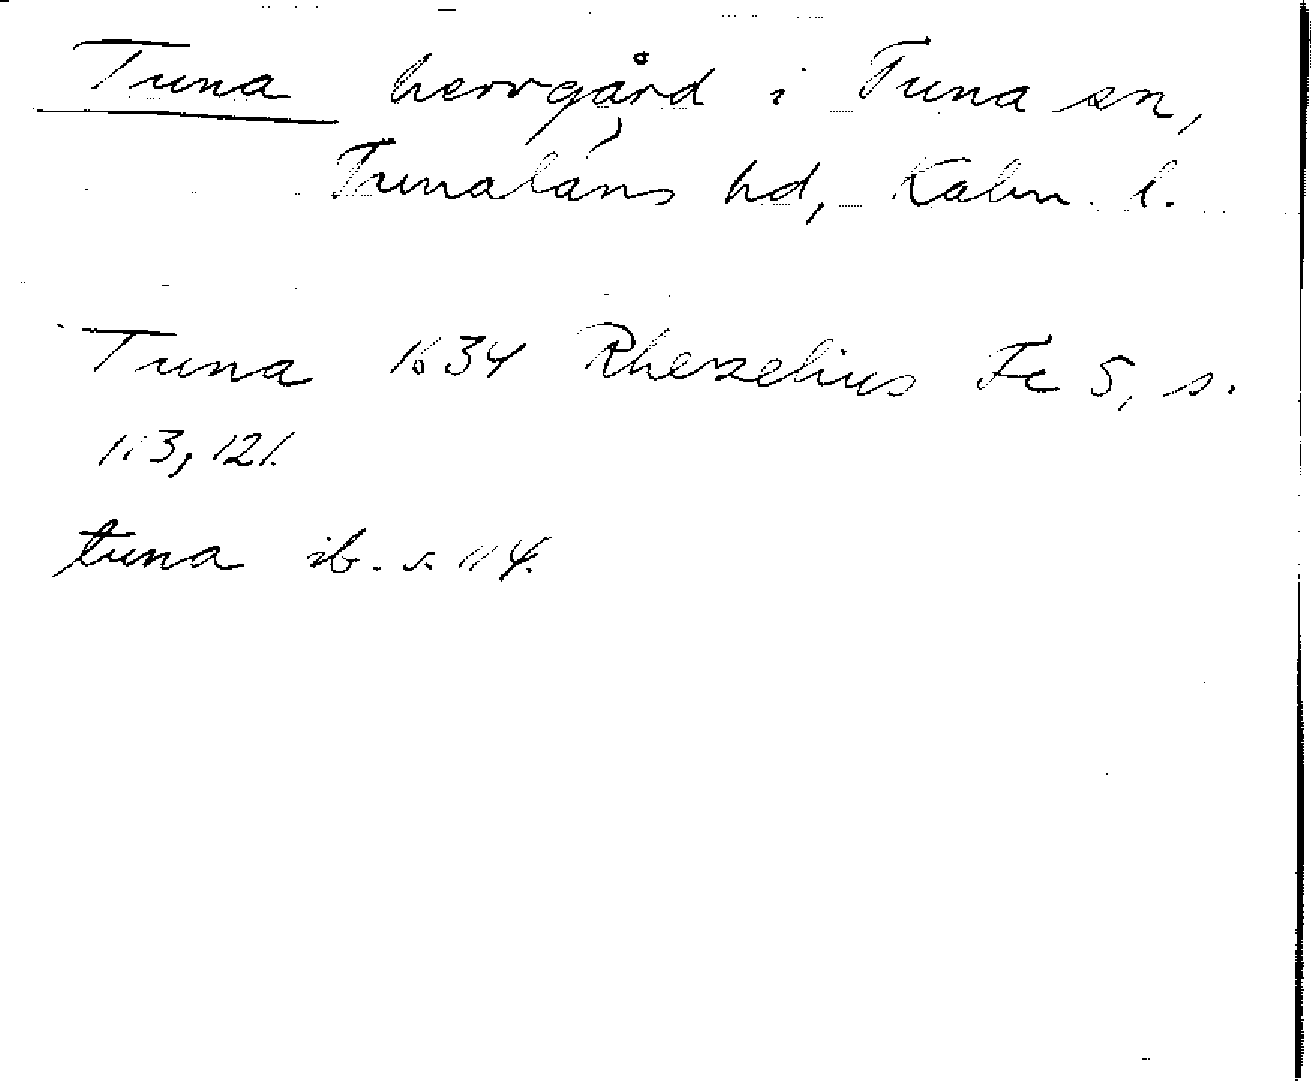 Tuna herrgård i Tuna sn,
Tunaläns hd, Kalm. l.
Tuna 1634 Rhezelius Fc 5, s.
113, 121.
tuna ib. s. 114.